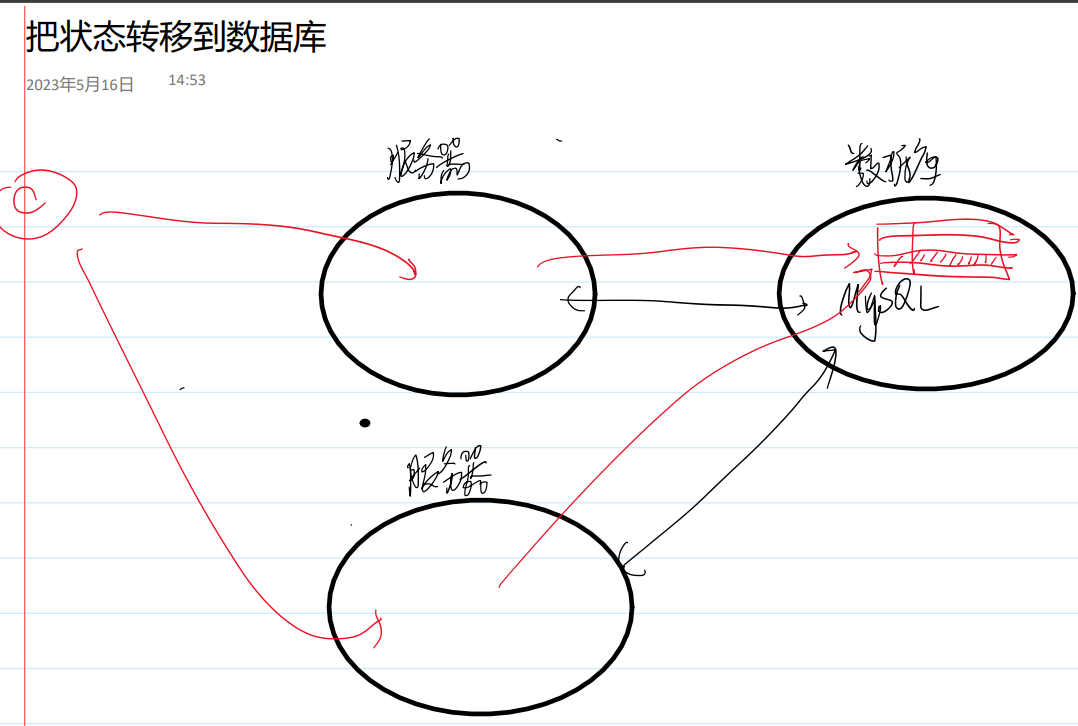 把状态转移到数据库
2023年5月16日 14:53
服务器
数据库
MySQL
服务器